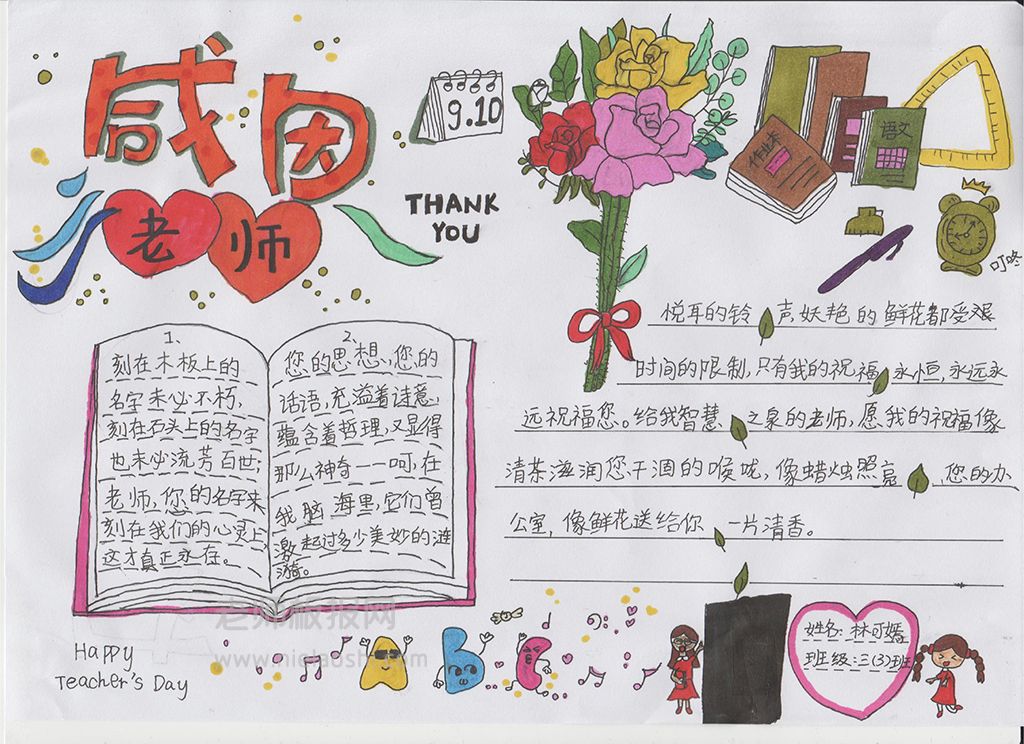 感恩
老师
9.10
THANK
YOU
作业本
语文
叮咚
1、
刻在木板上的
名字未必不朽，
刻在石头上的名字
也未必流芳百世；
老师，您的名字来
刻在我们的心灵上
这才真正永存。
2、
您的思想、您的
话语，充溢着诗意，
蕴含着哲理，又显得
那么神奇——呵，在
我脑海里，它们曾
激起过多少美妙的涟
漪。
悦耳的铃声妖艳的鲜花都受艰
时间的限制，只有我的祝福永恒，永远永
远祝福您。给我智慧之泉的老师，愿我的祝福像
清茶滋润您干涸的喉咙，像蜡烛照亮您的办
公室，像鲜花送给你一片清香。
Happy
Teacher's Day
老师板报网
A B C
姓名：林可嫣
班级：三(3)班